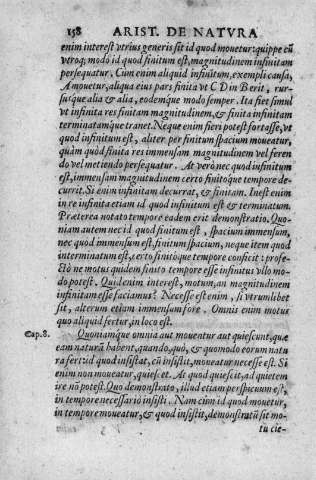 158 ARIST. DE NATVRA
enim interest vtrius generis sit id quod mouetur: quippe cũ
vtroq; modo id quod finitum est, magnitudinem infinitam
persequatur. Cum enim aliquid infinitum, exempli causa,
A mouetur, aliqua eius pars finita vt C D in B erit, rur-
susque alia & alia, eodemque modo semper. Ita fiet simul
vt infinita res finitam magnitudinem, & finita infinitam
terminatamque tranet. Neque enim fieri potest fortasse, vt
quod infinitum est, aliter per finitum spacium moueatur,
quàm quod finita res immensam magnitudinem vel feren
do vel metiendo persequatur. At verò nec quod infinitum
est, immensam magnitudinem certo finitoque tempore de-
currit. Si enim infinitam decurrat, & finitam. Inest enim
in re infinita etiam id quod infinitum est & terminatum.
Præterea notato tempore eadem erit demonstratio. Quo-
niam autem nec id quod finitum est, spacium immensum,
nec quod immensum est, finitum spacium, neque item quod
interminatum est, certo finitoque tempore conficit: profe-
ctò ne motus quidem finito tempore esse infinitus vllo mo-
do potest. Quid enim interest, motum, an magnitudinem
infinitam esse faciamus? Necesse est enim, si vtrumlibet
sit, alterum etiam immensum fore. Omnis enim motus
quo aliquid fertur, in loco est.
Cap. 8. Quoniamque omnia aut mouentur aut quiescunt, quæ
eam naturã habent, quando, quò, & quomodo eorum natu
ra fert: id quod insistat, cũ insistit, moueatur necesse est. Si
enim non moueatur, quiescet. At quod quiescit, ad quietem
ire nõ potest. Quo demonstrato, illud etiam perspicuum est,
in tempore necessariò insisti. Nam cùm id quod mouetur,
in tempore moueatur, & quod insistit, demonstratũ sit mo-
tu cie-